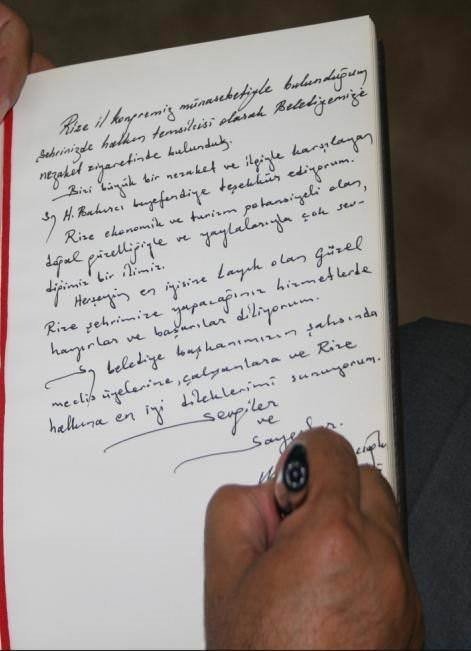 Rize il kongremiz münasebetiyle bulunduğum
şehrinizde halkın temsilcisi olarak Belediyemize
nezaket ziyaretinde bulunduk.
Bizi büyük bir nezaket ve ilgiyle karşılayan
Sn H. Bakırcı beyefendiye teşekkür ediyorum.
Rize ekonomik ve turizm potansiyeli olan,
doğal güzelliğiyle ve yaylalarıyla çok sev-
diğimiz bir ilimiz.
Herşeyin en iyisine layık olan güzel
Rize şehrimize yapacağınız hizmetlerde
hayırlar ve başarılar diliyorum.
Sn belediye başkanımızın şahsında
meclis üyelerine, çalışanlara ve Rize
halkına en iyi dileklerimi sunuyorum.
Sevgiler
ve